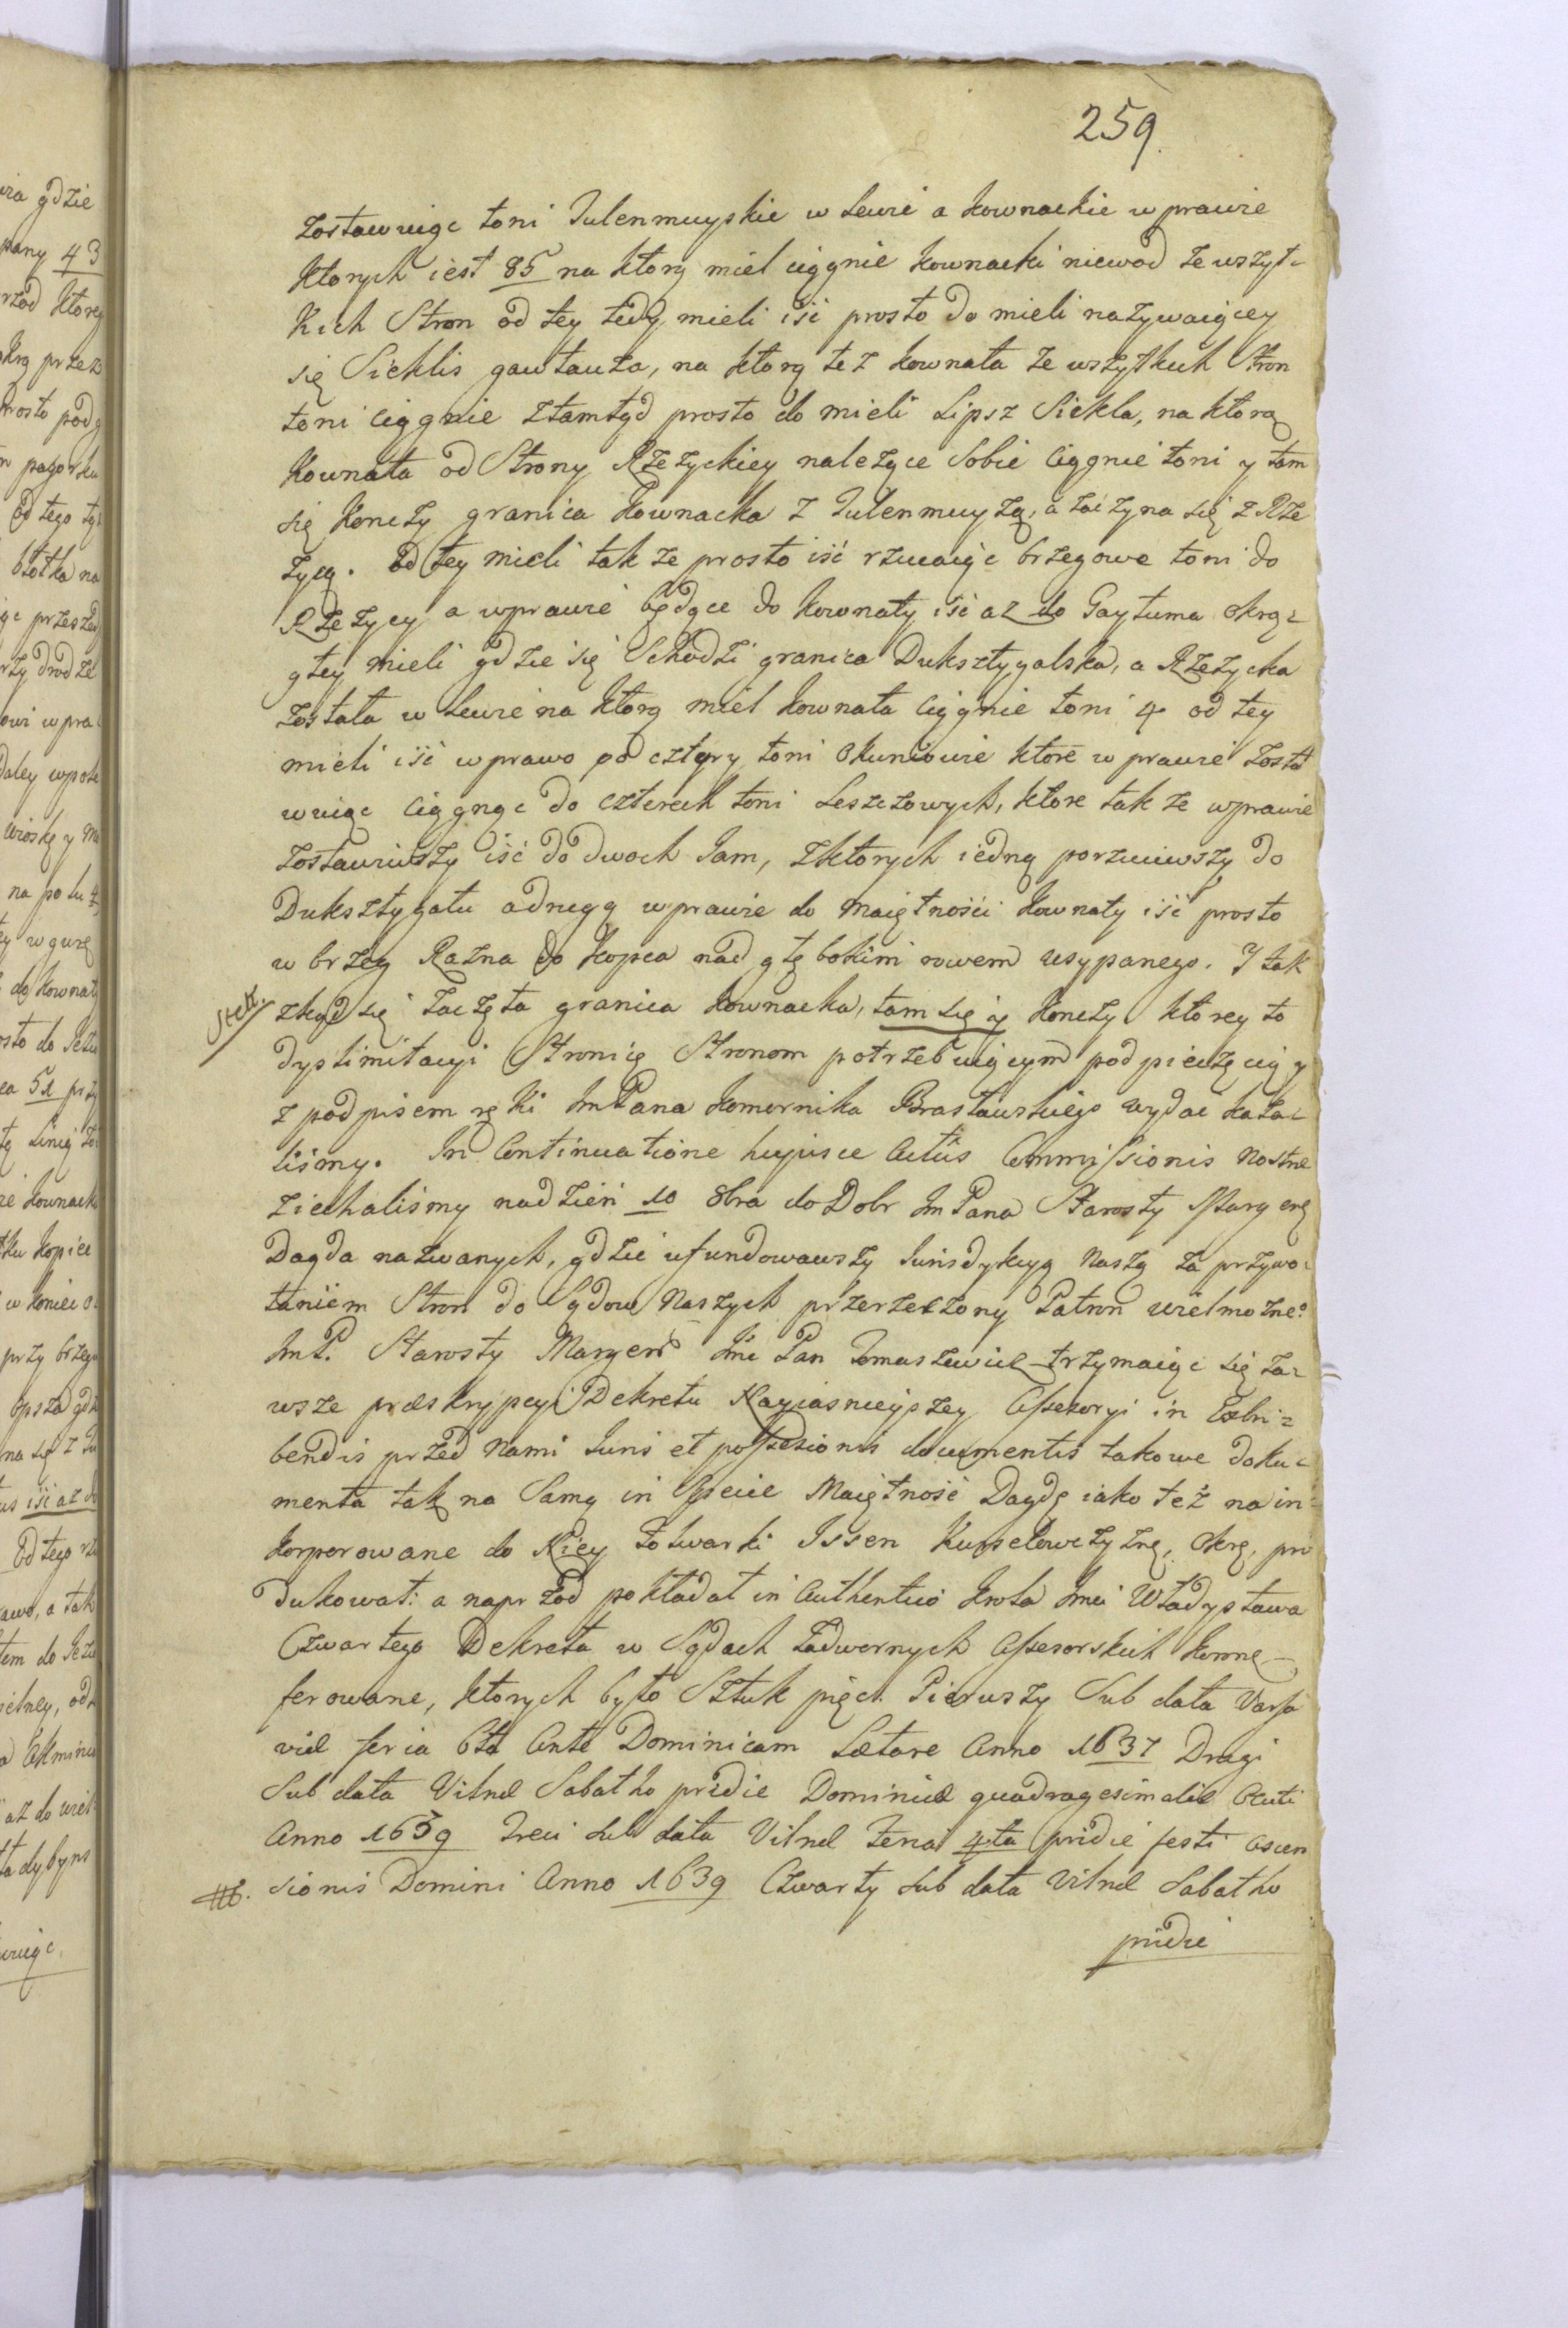 259.
zostawuiąc toni Julenmuyskie w lewie a kownackie w prawie
ktorych iest 85 na ktorą miel ciągnie kownacki niewod ze wszyt-
kich Stron od tey tedy mieli iść prosto do mieli nazywaiącey
się Sieklis gawtauza, na ktorą też kownata ze wszytkich Stron
toni ciągnie ztamtąd prosto do mieli Lipsz Siekla, na ktorą
kownata od Strony Rzezyckiey należące Sobie ciągnie toni y tam
się konczy granica kownacka z Julenmuyżą, a zaczyna się z Rze
zycą. od tey mieli takze prosto iść rzucaiąc brzegowe toni do
Rzezycy a wprawie będące do kownaty iść az do Gaytuma okrą-
głey mieli gdzie się Schodzi granica Duksztygalska, a Rzezycka
została w lewie na ktorą miel kownata ciągnie toni 4 od tey
mieli iść wprawo pod cztyry toni okuniowie ktore w prawie zosta
wuiąc ciągnąc do czterech toni Leszczowych, ktore takze wprawie
zostawiwszy iść do dwoch Jam, zktorych iedną porzuciwszy do
Duksztygału a drugą wprawie do maiętności kownaty iść prosto
w brzeg Razna do kopca nad głębokim rowem usypanego. I tak
zkąd się zaczęta granica kownacka, tam się y konczy ktorey to
dyslimitacyi Stronie Stronom potrzebuiącym pod pieczęcią y
z podpisem ręki JmPana komornika Brasławskiego wydać kaza-
liśmy. In Continuatione hujusce Actus Commissionis nostræ
ziechaliśmy nadzień 10 8bra do Dobr JmPana Starosty Margeng
Dagda nazwanych, gdzie ufundowawszy Jurisdykcyą naszą za przywo-
łaniem Stron do Sądow Naszych przerzeczony Patron wielmożne°
JmP. Starosty Margen Jmć Pan Tomaszewicz trzymaiąc się za-
wsze præskrypcyi Dekretu Nayiasnieyszey Assesoryi in Exhi-
bendis przed Nami Juris et possesionis documentis takowe doku-
menta tak na Samą in Specie Maiętność Dagdę iako też na in-
korporowane do Niey folwarki Issen Kupselowczyznę, okrę, pro
dukował: a naprzod pokładał in Authentico krola Jmci Władysława
Czwartego Dekreta w Sądach Zadwornych Assesorskich koronę
ferowane, ktorych było Sztuk pięć. Pierwszy Sub data Varsa
viæ feria 6ta Ante Dominicam Lætare Anno 1637 Drugi
Sub data Vilnæ Sabatho pridie Dominicæ quadragesimalis Oculi
Anno 1639 Trzeci Sub data Vilnæ feria 4ta pridie festi Ascen
sionis Domini Anno 1639 Czwarty Sub data Vilnæ Sabatho
pridie